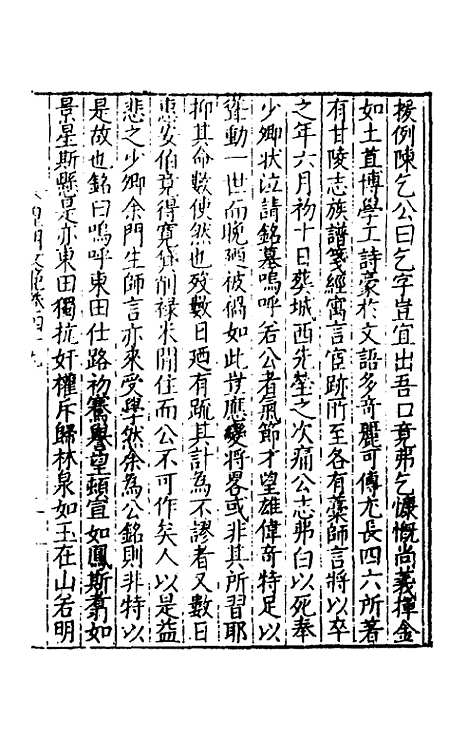 援例陳乞公曰乞字豈宜出吾口竟弗乞慷慨尚義揮金
如土苴博學工詩豪於文語多奇麗可傳尤長四六所著
有甘陵志族譜箋經寓言宦跡所至各有藁師言將以卒
之年六月初十日葬城西先塋之次痛公志弗白以死奉
少卿狀泣請銘墓嗚呼若公者氣節才望雄偉奇特足以
聳動一世而晚廼被禍如此豈應變將畧或非其所習耶
抑其命數使然也歿數日廼有疏其計為不謬者又數日
惠安伯竟得寬貸削祿米閒住而公不可作矣人以是益
悲之少卿余門生師言亦來受學然余為公銘則非特以
是故也銘曰嗚呼東田仕路初騫譽望頓宣如鳳斯翥如
景星斯懸是亦東田獨抗奸權斥歸林泉如玉在山若明
皇明文范卷四十九